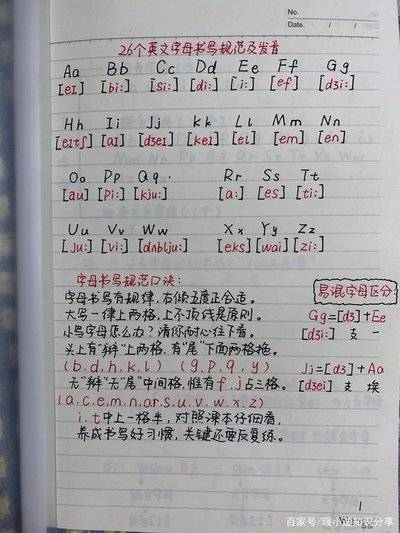 No.
Date.
26个英文字母书写规范及发音
Aa Bb Cc Dd Ee Ff Gg
[eɪ] [bi:] [si:] [di:] [i:] [ef] [dʒi:]
Hh Ii Jj Kk Ll Mm Nn
[eɪtʃ] [aɪ] [dʒeɪ] [keɪ] [el] [em] [en]
Oo Pp Qq Rr Ss Tt
[əu] [pi:] [kju:] [a:] [es] [ti:]
Uu Vv Ww Xx Yy Zz
[ju:] [vi:] [dʌblju:] [eks] [wai] [zi:]
字母书写规范口诀:
字母书写有规律,右倾五度正合适。
大写一律上两格,上不顶线是原则。
小写字母怎么办?请你耐心往下看。
头上有"辫"上两格,有"尾"下面两格拖。
(b.d.h.k.l) (g.p.q.y)
无"辫"无"尾"中间格,惟有f.j占三格。
(a.c.e.m.n.o.r.s.u.v.w.x.z)
i.t中上一格半,对照课本仔细看,
养成书写好习惯,关键还要反复练。
易混字母区分
Gg=[dʒ]+Ee
[dʒi:] 支 一
Jj=[dʒ]+Aa
[dʒei] 支 埃
百家号/暖小迪知识分享